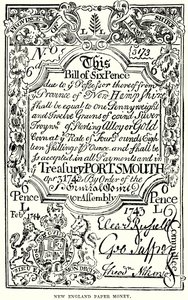 No
(5173)
This
Bill of Six Pence
due to ye Possessor thereof from ye
Province of New Hampshire
shall be equal to one Pennyweight
and Twelve Grains of coind Silver
Troy wt of Sterling Alloy or Gold
Coin at ye Rate of Four Pounds Eigh
teen Shillings ye Ounce and shall be
so accepted in all Payments and in
ye Treasury PORTSMOUTH
Apr 3 1742 By Order of the
General
Assembly
Feb
1744
1743
NEW ENGLAND PAPER MONEY.